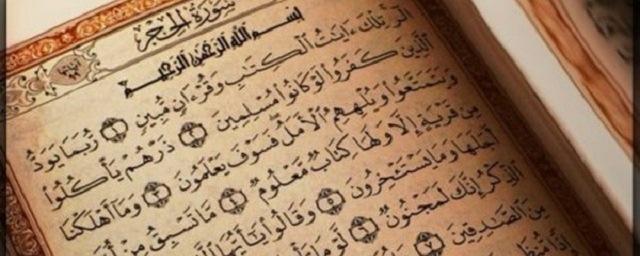 سُورَةُ الحِجْرِ
بِسْمِ اللَّهِ الرَّحْمَٰنِ الرَّحِيمِ
الٓرۚ تِلْكَ ءَايَٰتُ ٱلْكِتَٰبِ وَقُرْءَانٍ مُّبِينٍ ١ رُّبَمَا يَوَدُّ
ٱلَّذِينَ كَفَرُوا۟ لَوْ كَانُوا۟ مُسْلِمِينَ ٢ ذَرْهُمْ يَأْكُلُوا۟
وَيَتَمَتَّعُوا۟ وَيُلْهِهِمُ ٱلْأَمَلُ فَسَوْفَ يَعْلَمُونَ ٣ وَمَآ أَهْلَكْنَا
مِن قَرْيَةٍ إِلَّا وَلَهَا كِتَابٌ مَّعْلُومٌ ٤ مَّا تَسْبِقُ مِنْ
أَجَلَهَا وَمَا يَسْتَـْٔخِرُونَ ٥ وَقَالُوا۟ يَٰٓأَيُّهَا
ٱلذِّكْرُ إِنَّكَ لَمَجْنُونٌ ٦ لَّوْ مَا
مِنَ ٱلصَّٰدِقِينَ ٧
إِذًا